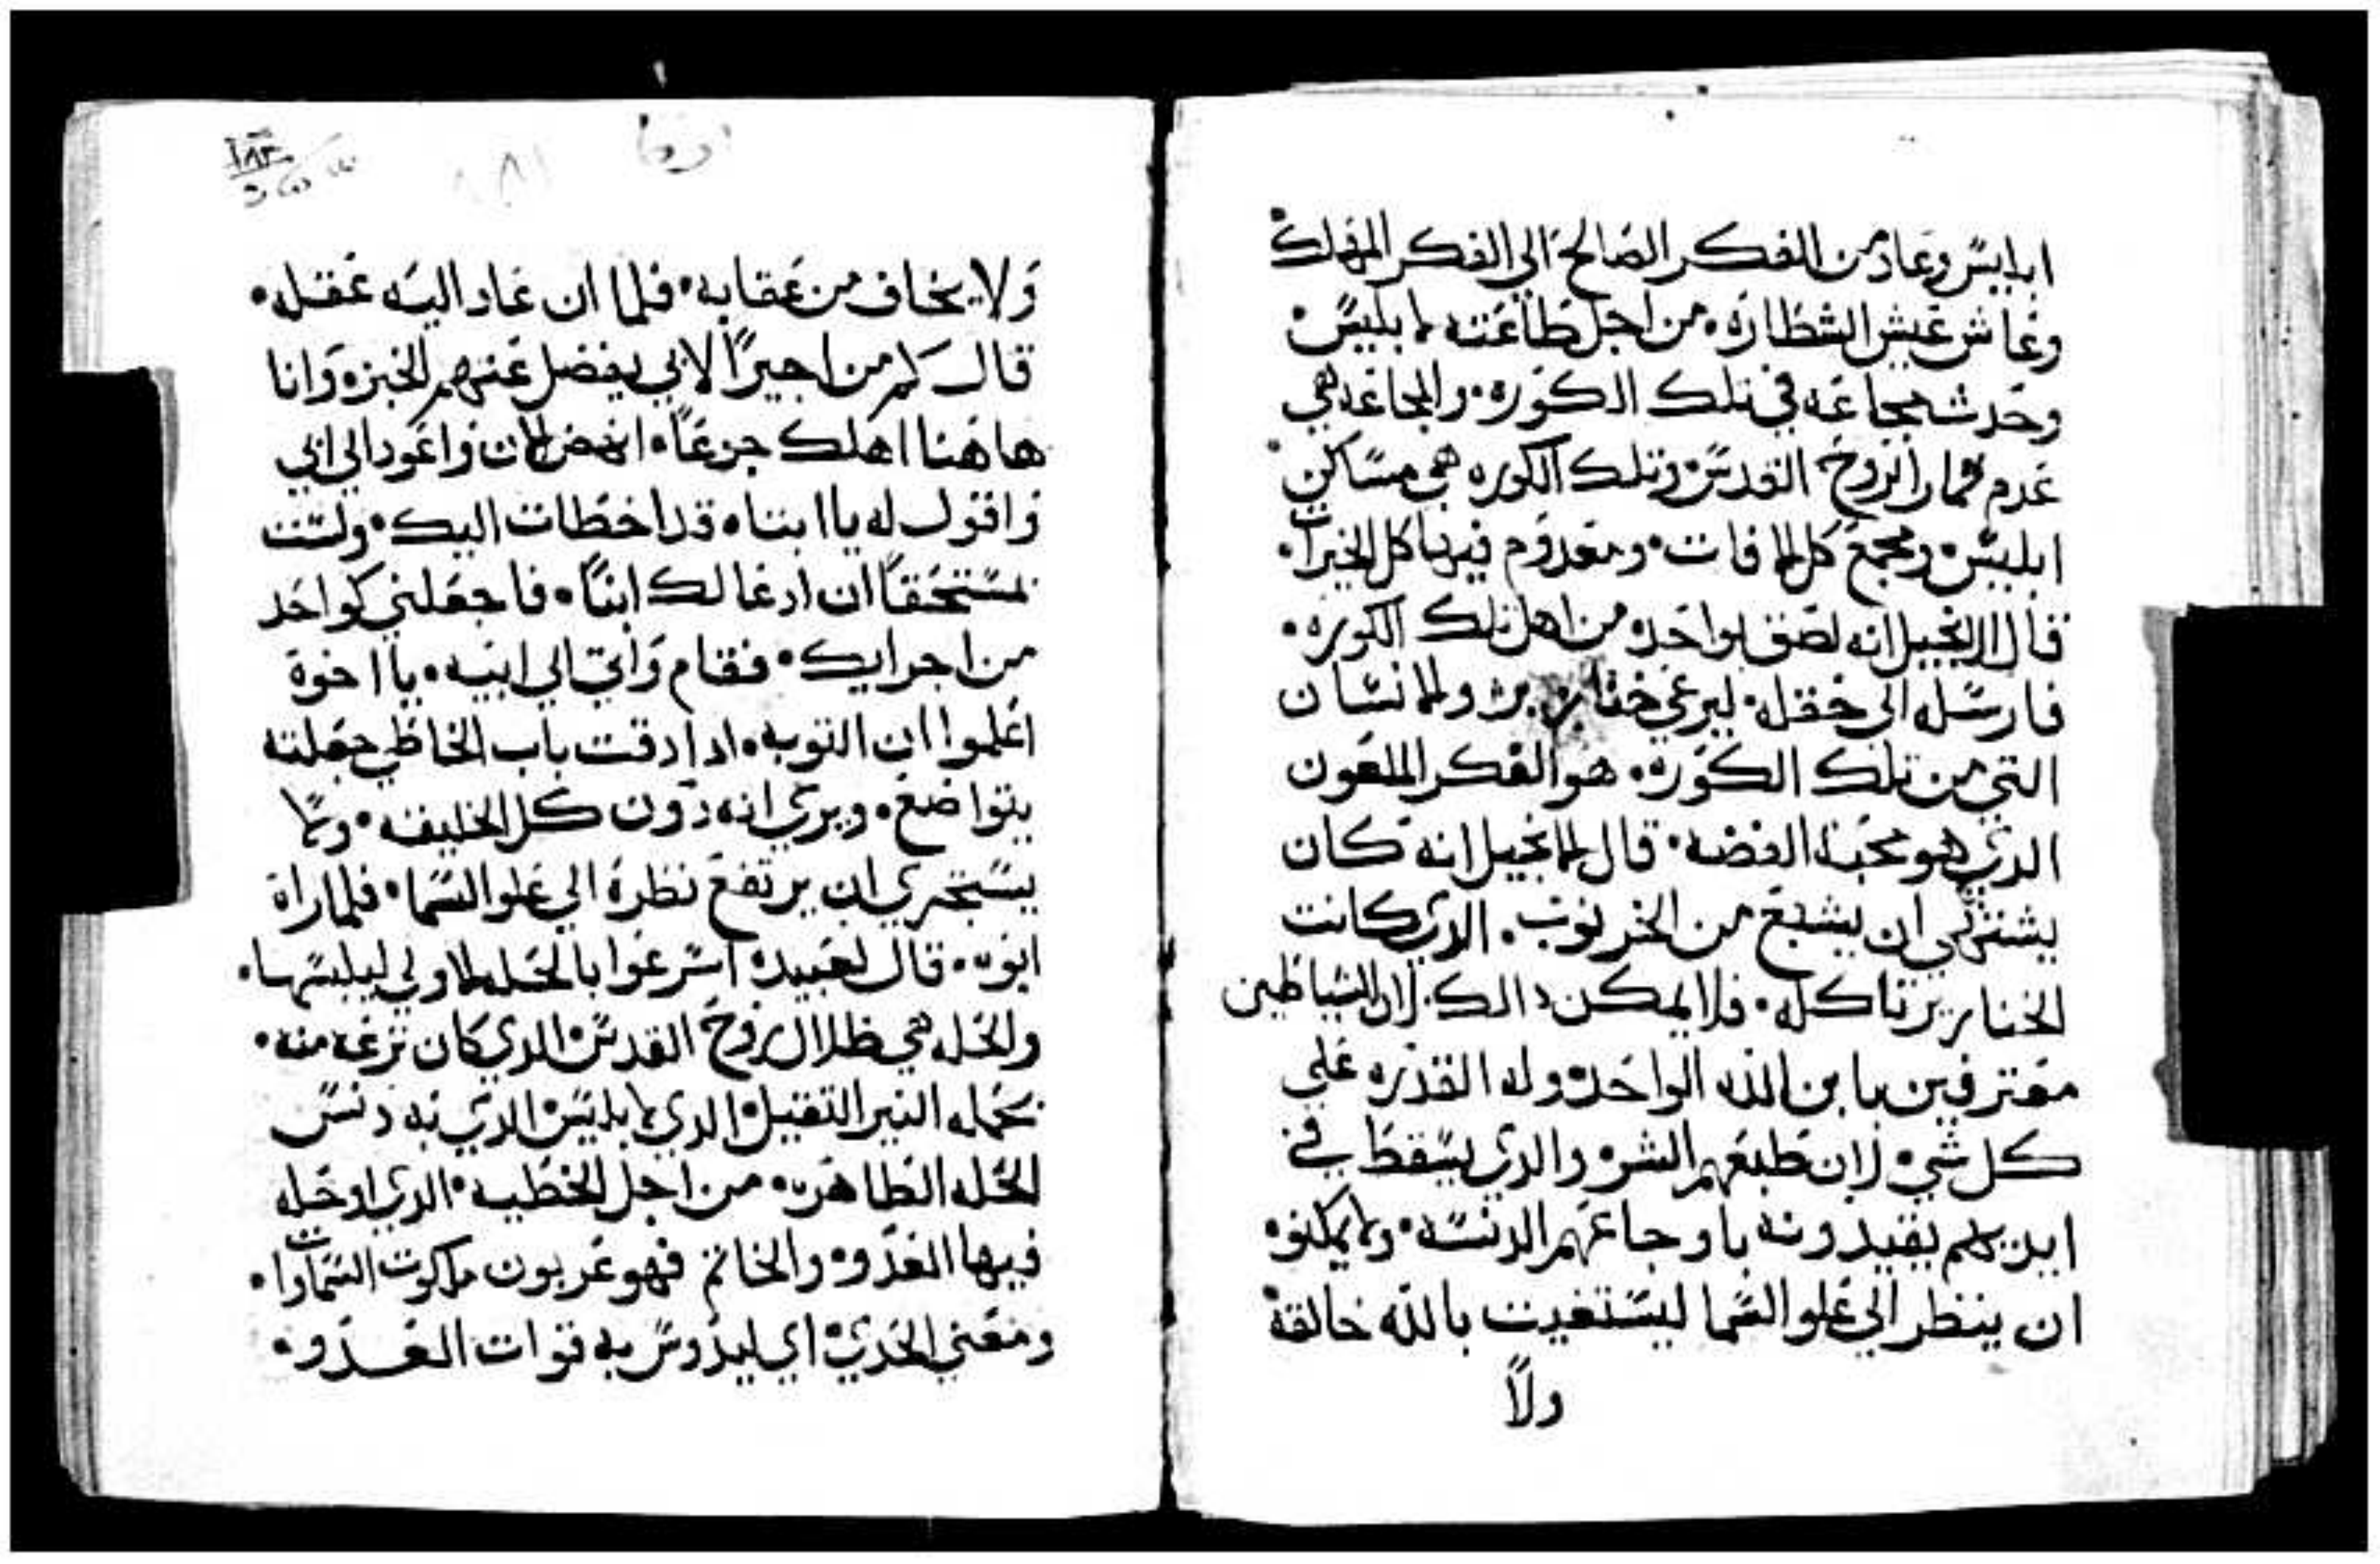 ابليس وعاد من الفكر الصالح الي الفكر المهلك
وعاش عيش الشطاره • من اجل طاعته لابليس •
وحدث مجاعه في تلك الكوره • والمجاعه هي
عدم ثمار الروح القدس • وتلك الكوره هي مساكن
ابليس • ومجمع كل الافات • ومعدوم فيها كل الخيرات •
قال الانجيل انه لصق بواحد من اهل تلك الكوره •
فارسله الى حقله • ليرعي خنازير • والانسان
التي من تلك الكوره • هو الفكر الملعون
الدي هو محبة الفضه • قال الانجيل انه كان
يشتهي ان يشبع من الخرنوب • الدي كانت
الخنازير تاكله • فلا يمكن دالك • لان الشياطين
معترفين بابن الله الواحد • وله القدره علي
كل شي • لان طبعهم الشر • والدي يسقط في
ايديهم يقيدونه باوجاعهم الدنسه • ولا يمكنوه
ان ينظر الي علو السما ليستغيت بالله خالقه
ولا
١٨٣
ولا يخاف من عقابه • فلما ان عاد اليه عقله •
قال كم من اجيرا لابي يفضل عنهم الخبز • وانا
هاهنا اهلك جوعا • انهض الان واعود الي ابي
واقول له يا ابتاه قد اخطات اليك • ولست
مستحقا ان ادعا لك ابنا • فاجعلني كواحد
من اجرايك • فقام واتي الي ابيه • يا اخوة
اعلموا ان التوبه • ادا دقت باب الخاطي جعلته
يتواضع • ويري انه دون كل الخليقه • ولا
يستجري ان يرتفع نظره الي علو السما • فلما راه
ابوه • قال لعبيده اسرعوا بالحله الاولي ليلبسها •
والحله هي ظلال روح القدس • الدي كان نزعه منه •
بحمله النير التقيل • الدي لابليس الدي به دنس
الحله الطاهره • من اجل الخطيه • الدي ادخله
فيها العدو • والخاتم فهو عربون ملكوت السماوات •
ومعني الحدي • اي ليدوس به قوات العدو •